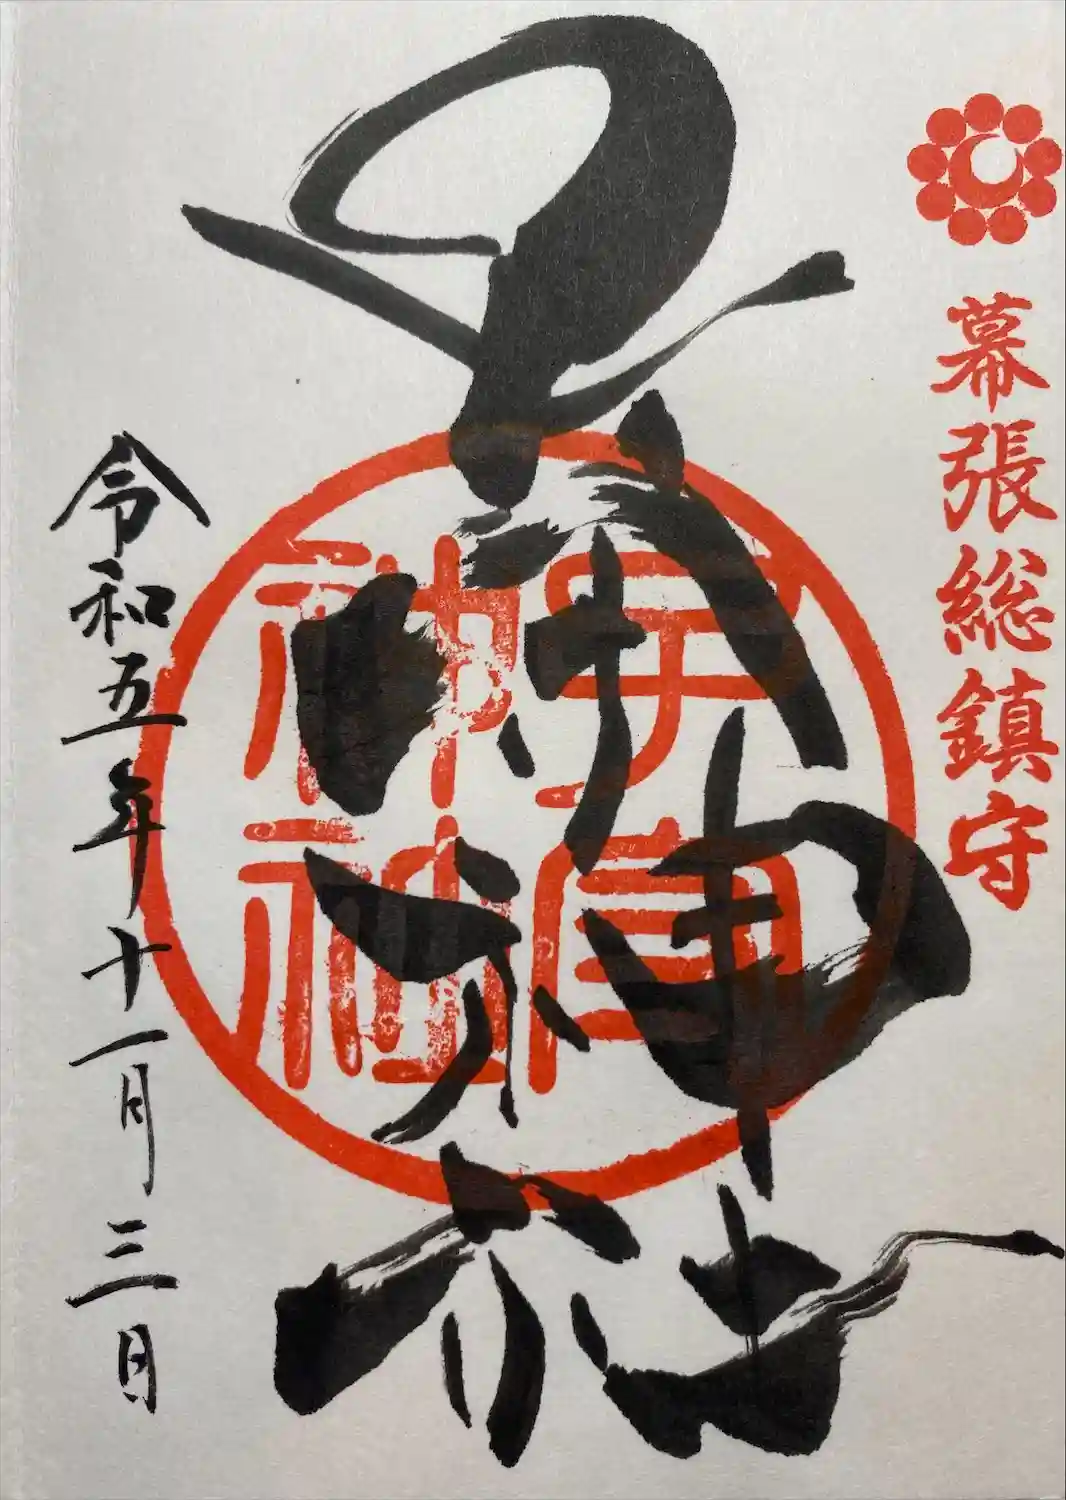 幕張総鎮守
子守神社
子守
神社
令和五年十一月三日